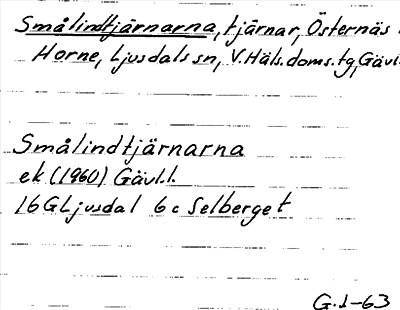 Smålindtjärnarna, tjärnar, Östernäs
Horne, Ljusdals sn, V. Häls. doms. tg, Gävl.
Smålindtjärnarna
ek (1960) Gävl. l.
16 G Ljusdal 6 c Selberget
G. I-63